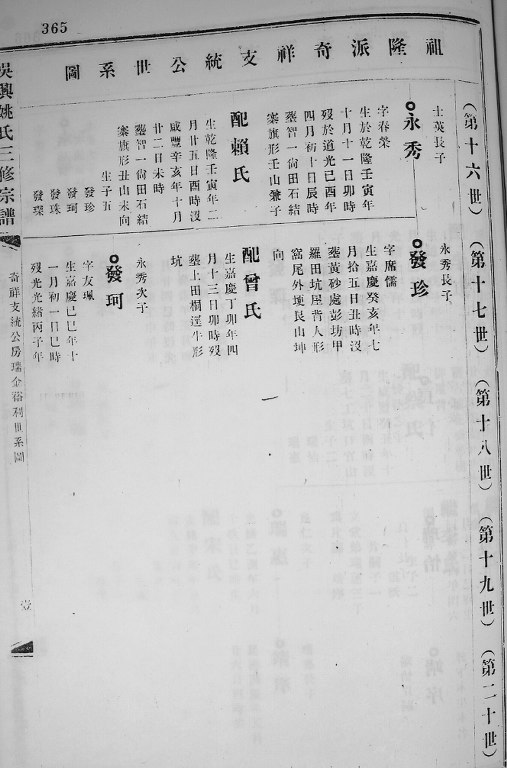 365
祖隆派奇祥支統公世系圖
(第十六世)
(第十七世)
(第十八世)
(第十九世)
(第二十世)
士英長子
永秀
字春榮
生於乾隆壬寅年
十月十一日卯時
歿於道光己酉年
四月初十日辰時
塟智一尙田石結
寨旗形壬山兼子
配賴氏
生乾隆壬寅年二
月廿五日酉時沒
咸豐辛亥年十月
廿二日未時
塟智一尙田石結
寨旗形丑山未向
生子五
發珍
發珂
發珠
發環
永秀長子
發珍
字席儒
生嘉慶癸亥年七
月拾五日丑時沒
塟黃砂處彭坊甲
羅田坑屋背人形
窩尾外塊艮山坤
向
配曾氏
生嘉慶丁卯年四
月十三日卯時歿
塟上田桐逕牛形
坑
永秀次子
發珂
字友珮
生嘉慶己巳年十
一月初一日巳時
歿光緒丙子年
吳興姚氏三修宗譜
奇祥支統公房瑞金
利世系圖
壹